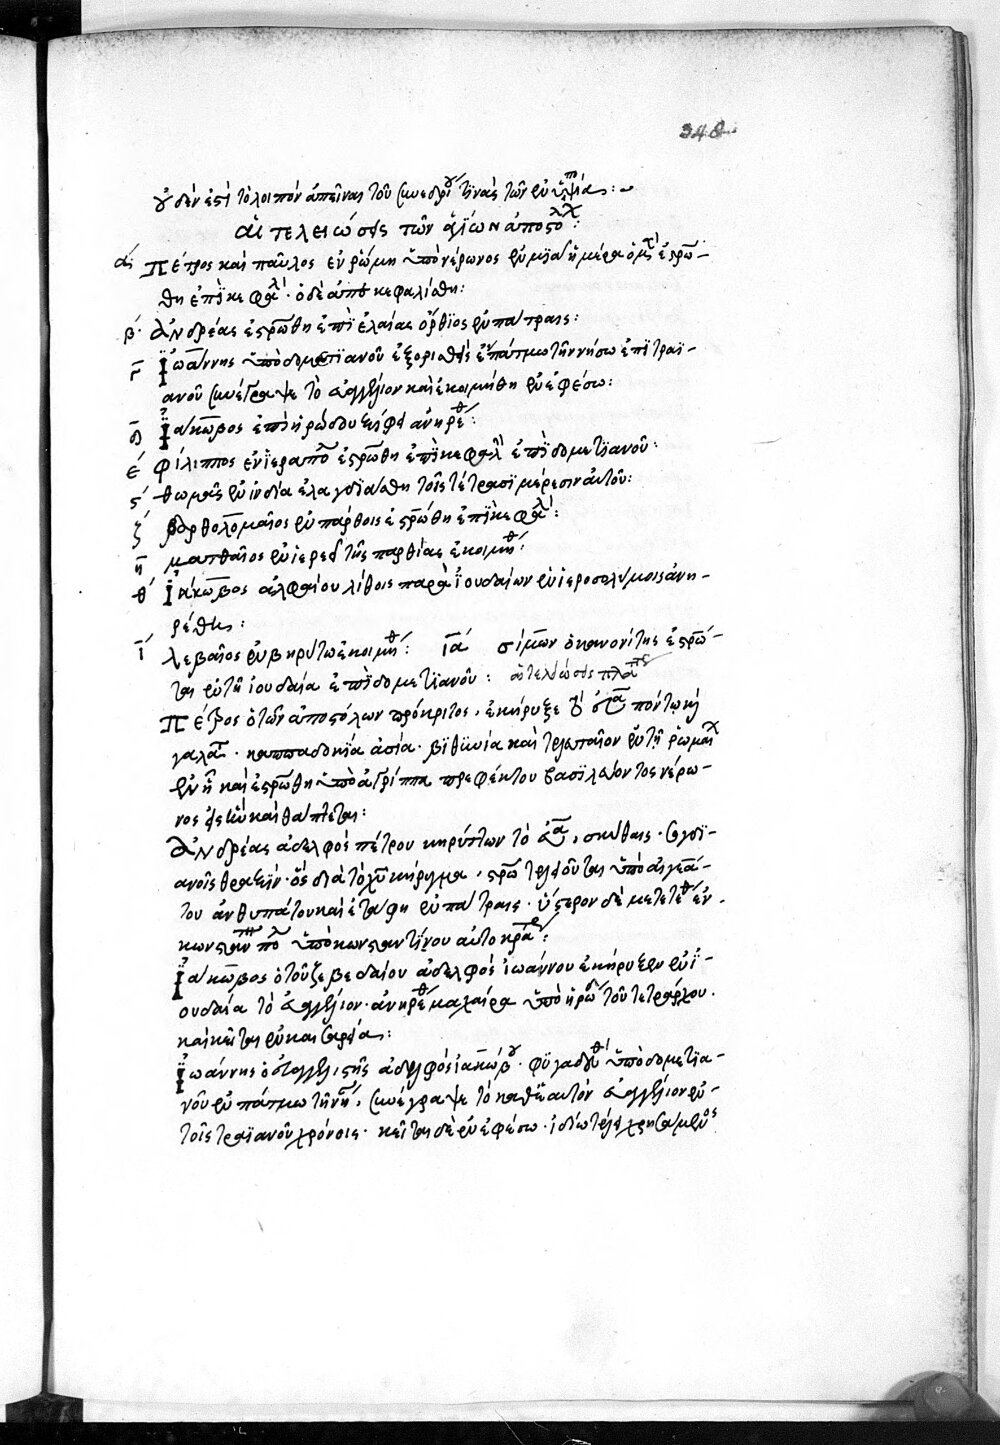 οὐδέν ἐστὶ τὸ λοιπὸν ἀπεῖναι τοῦ συνεδρίου τινὰς τῶν ἐν
αἱ τελειώσεις τῶν ἁγίων ἀποστόλ
α΄ Πέτρος καὶ παῦλος ἐν ῥώμη ὑπὸ νέρωνος ἐν μιᾶ ἡμέρα ὁ μ ἐσρω-
θη ἐπὶ κεφαλ· ὁ δὲ ἀπεκεφαλίσθη:
β΄ Ἀνδρέας ἐσρώθη ἐπὶ ἐλαίας ὄρθιος ἐν πάτραις:
γ Ἰωάννης ὑπὸ δομετιανοῦ ἐξορισθεὶς ἐν πάτμω τῆ νήσω ἐπὶ τραϊ-
ανοῦ συνέγραψε τὸ εὐαγγέλιον καὶ ἐκοιμήθη ἐν ἐφέσω:
δ Ἰάκωβος ἐπὶ ἡρώδου ξίφει ἀνηρέθ:
ε΄ φίλιππος ἐν ἱεραπόλ ἐσρώθη ἐπὶ κεφαλ ἐπὶ δομετιανοῦ:
ς΄ θωμᾶς ἐν ἰνδία ἐλαγδιάσθη τοῖς τέτρασι μέρεσιν αὐτοῦ:
ζ βαρθολομαῖος ἐν πάρθοις ἐσρώθη ἐπὶ κεφαλ:
η ματθαῖος ἐν ἱερεῖ τῆς παρθίας ἐκοιμήθ:
θ Ἰάκωβος ἀλφαίου λίθοις παρὰ ἰουδαίων ἐν ἱεροσολύμοις ἀνη-
ρέθη:
ι λεβαῖος ἐν βηρύτω ἐκοιμήθ: ια σίμων ὁ κανονίτης ἐσρώ-
ται ἐν τῆ ἰουδαία ἐπὶ δομετιανοῦ:
Πέτρος ὁ τῶν ἀποστόλων πρόκριτος, ἐκήρυξε τὸ εὐα πόντω κ
γαλατ· καππαδοκία ἀσία· βιθυνία καὶ τελευταῖον ἐν τῆ ῥωμαϊκ
ἐν ἧ καὶ ἐσρώθη ὑπὸ ἀγρίππα πρεφέκτου βασιλεύοντος νέρω-
νος καὶ θάπτεται:
Ἀνδρέας ἀδελφὸς πέτρου κηρύττων τὸ εὐα, σκύθαις· σογδι-
ανοῖς θραξίν· ὃς διὰ τὸ χῦ κήρυγμα, σρω τελειοῦται ὑπὸ αἰγεά-
του ἀνθυπάτου καὶ ἐτάφη ἐν πάτραις· ὕστερον δὲ μετετέθ ἐν
κωνσταντπολ ὑπὸ κωνσταντίνου αὐτοκρα:
Ἰάκωβος ὁ τοῦ ζεβεδαίου ἀδελφὸς ἰωάννου ἐκήρυξεν ἐν ἰ-
ουδαία τὸ εὐαγγέλιον· ἀνηρέθ μαχαίρα ὑπὸ ἡρώδ τοῦ τετράρχου·
καὶ κεῖται ἐν καισαρεία:
Ἰωάννης ὁ εὐαγγελιστὴς ἀδελφὸς ἰακώβου· φυγαδευθ ὑπὸ δομετια-
νοῦ ἐν πάτμω τῆ νήσ, συνέγραψε τὸ καθ᾽ ἑαυτὸν εὐαγγέλιον ἐν
τοῖς τραϊανοῦ χρόνοις· κεῖται δὲ ἐν ἐφέσω· ἰδίω τέλει χρησάμενος